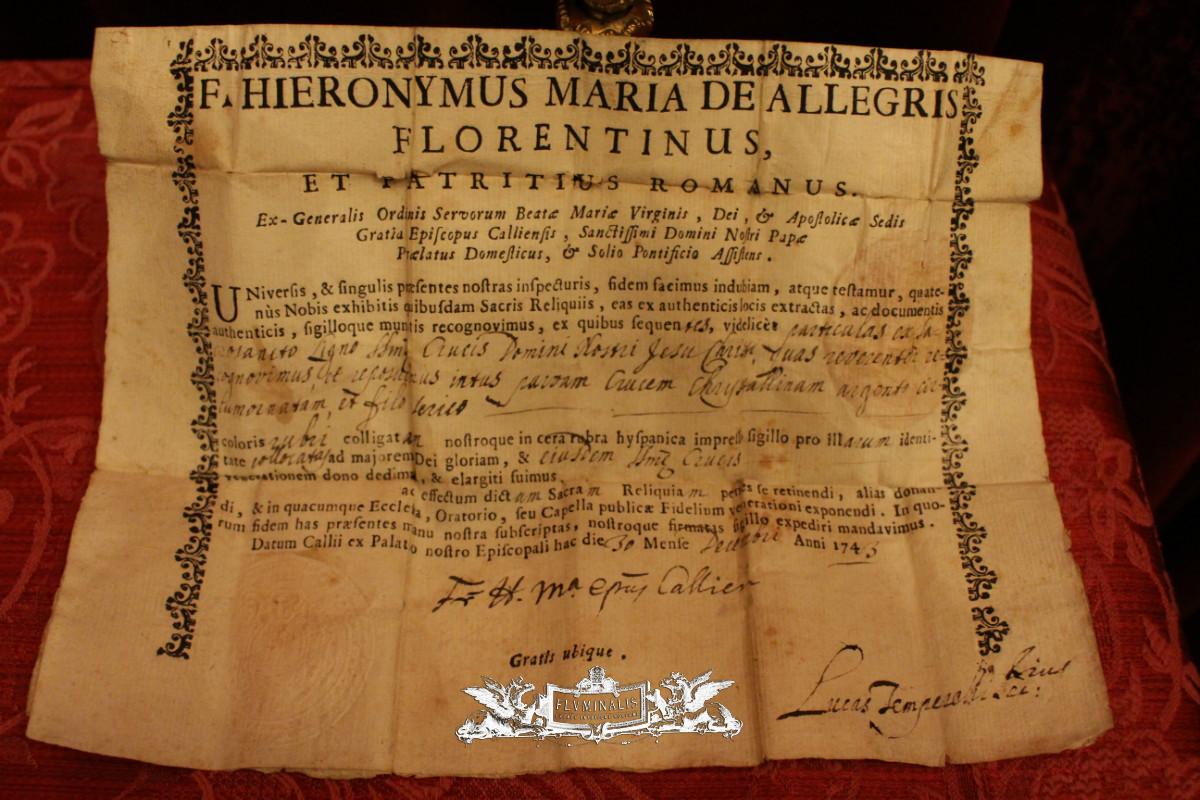 F. HIERONYMUS MARIA DE ALLEGRIS
FLORENTINUS,
ET PATRITIUS ROMANUS.
Ex-Generalis Ordinis Servorum Beatæ Mariæ Virginis, Dei, & Apostolicæ Sedis
Gratia Episcopus Calliensis, Sanctissimi Domini Nostri Papæ
Prælatus Domesticus, & Solio Pontificio Assistens.
UNiversis, & singulis præsentes nostras inspecturis, fidem facimus indubiam, atque testamur, quate-
nùs Nobis exhibitis quibusdam Sacris Reliquiis, eas ex authenticis locis extractas, ac documentis
authenticis, sigilloque munitis recognovimus, ex quibus sequentes, videlicèt particulas ex Sa-
Ligno Ssmæ Crucis Domini Nostri Jesu Christi, quas reverenter re-
cognovimus, et reposuimus intus parvam Crucem Chrystallinam argento cir-
cumornatam, et filo serico
coloris rubri colligatam nostroque in cera rubra hyspanica impresso sigillo pro illarum identi-
tate collocatas ad majorem Dei gloriam, & ejusdem Ssmæ Crucis
venerationem dono dedimus, & elargiti fuimus
ac effectum dictam Sacram Reliquiam penes se retinendi, alias donan-
di, & in quacumque Ecclesia, Oratorio, seu Capella publicæ Fidelium venerationi exponendi. In quo-
rum fidem has præsentes manu nostra subscriptas, nostroque firmatas sigillo expediri mandavimus.
Datum Callii ex Palatio nostro Episcopali hac die 30 Mense Decembris Anni 1743
Fr H. Ma epus Callien
Gratis ubique.
Lucas
FLVMINALIS